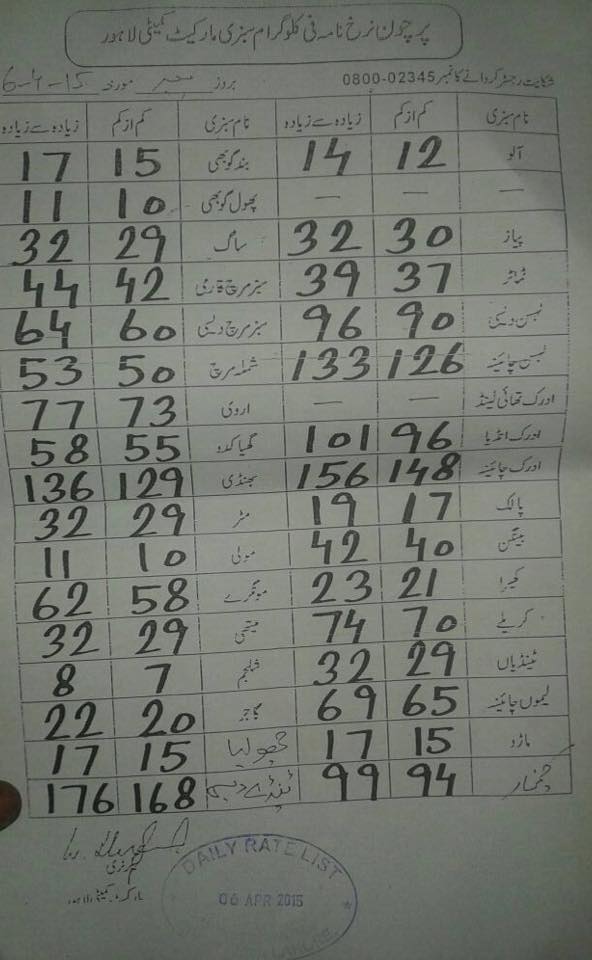 پرچون نرخ نامہ فی کلوگرام سبزی مارکیٹ کمیٹی لاہور
شکایت رجسٹر کروانے کا نمبر 0800-02345 بروز پیر مورخہ 6-4-15
نام سبزی کم از کم زیادہ سے زیادہ نام سبزی کم از کم زیادہ سے زیادہ
آلو 12 14 بند گوبھی 15 17
— — پھول گوبھی 10 11
پیاز 30 32 ساگ 29 32
ٹماٹر 37 39 سبز مرچ فارمی 42 44
لہسن دیسی 90 96 سبز مرچ دیسی 60 64
لہسن چائینہ 126 133 شملہ مرچ 50 53
ادرک تھائی لینڈ — — اروی 73 77
ادرک انڈیا 96 101 گھیا کدو 55 58
ادرک چائینہ 148 156 بھنڈی 129 136
پالک 17 19 مٹر 29 32
بینگن 40 42 مولی 10 11
کھیرا 21 23 مونگرے 58 62
کریلے 70 74 میتھی 29 32
ٹینڈیاں 29 32 شلجم 7 8
لیموں چائینہ 65 69 گاجر 20 22
ماڑو 15 17 چھولیا 15 17
94 99 ٹینڈے دیسی 168 176
سیکرٹری
مارکیٹ کمیٹی لاہور
DAILY RATE LIST
06 APR 2015
LAHORE